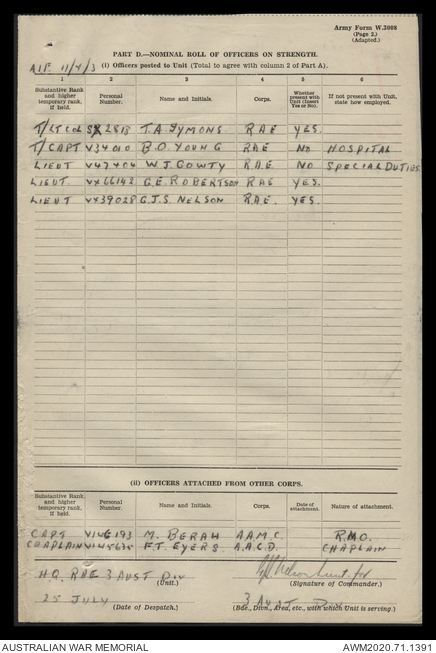 Army Form W.3008
(Page 2.)
(Adapted.)
PART D.—NOMINAL ROLL OF OFFICERS ON STRENGTH.
(i) Officers posted to Unit (Total to agree with column 2 of Part A).
A.I.F. 11/4/3
1 2 3 4 5 6
Substantive Rank and higher temporary rank, if held. Personal Number. Name and Initials. Corps. Whether present with Unit (Insert Yes or No). If not present with Unit, state how employed.
T/LT COL SX2813 T.A. SYMONS RAE YES.
T/CAPT V34010 B.O. YOUNG RAE NO HOSPITAL
LIEUT V47404 W.J. GOWTY R.A.E. NO SPECIAL DUTIES.
LIEUT. VX66142 G.E. ROBERTSON RAE YES.
LIEUT VX39028 G.J.S. NELSON R.A.E. YES.
(ii) OFFICERS ATTACHED FROM OTHER CORPS.
Substantive Rank and higher temporary rank, if held. Personal Number. Name and Initials. Corps. Date of attachment. Nature of attachment.
CAPT M. BERAH A.A.M.C. R.M.O.
CHAPLAIN F.T. EYERS. A.A.C.D. CHAPLAIN
H.Q. RAE 3 AUST DIV Nelson Lieut for
(Unit.) (Signature of Commander.)
25 JULY 3 AUST DIV
(Date of Despatch.) (Bde., Divn., Area, etc., with which Unit is serving.)
AUSTRALIAN WAR MEMORIAL AWM2020.71.1391